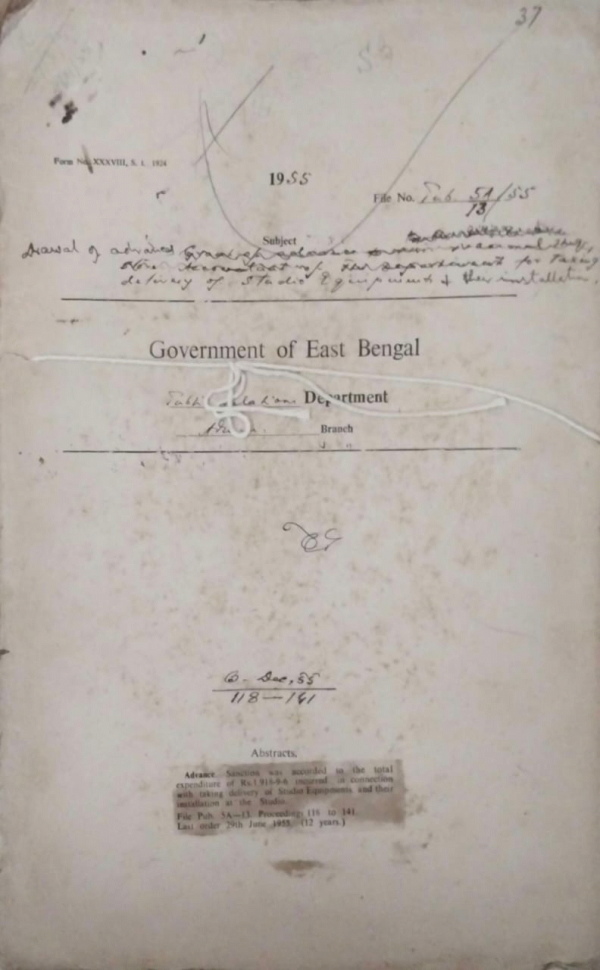 37
Form No. XXXVIII, S. I. 1924
1955
File No. Pub. 5A/55
13
Subject
Drawal of advance
Store Accountant of the Department for Taking
delivery of Studio Equipments & their installation.
Government of East Bengal
Department
Branch
B- Dec, 55
118—141
Abstracts.
Advance. Sanction was accorded to the total
expenditure of Rs. incurred in connection
with taking delivery of Studio Equipments and their
installation at the Studio.
File Pub. 5A—13. Proceedings 118 to 141.
Last order 29th June 1955. (12 years.)